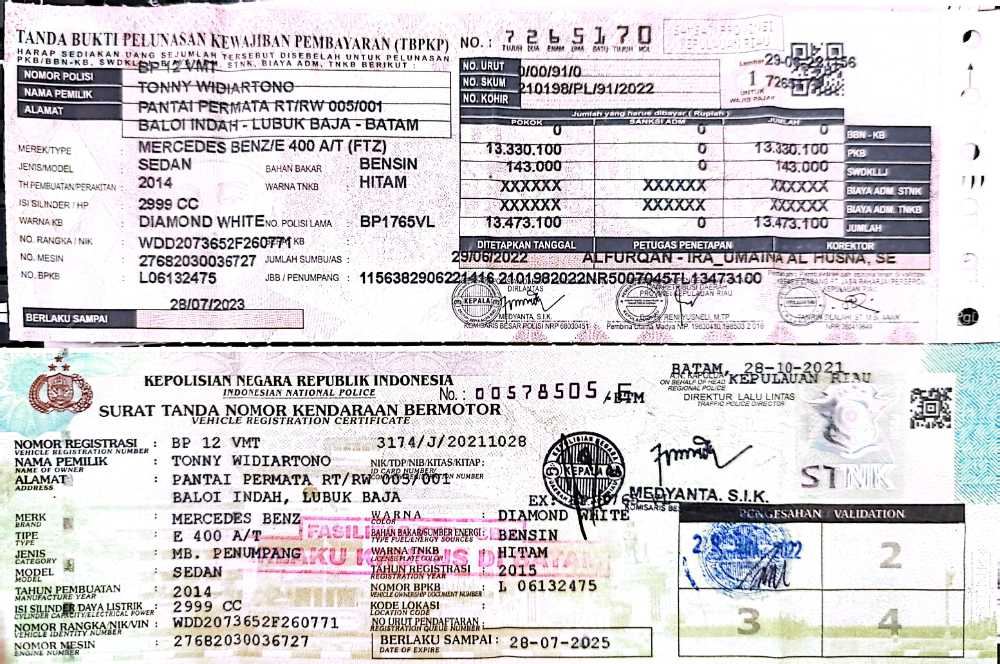 TANDA BUKTI PELUNASAN KEWAJIBAN PEMBAYARAN (TBPKP)
NO. : 7 2 6 5 1 7 0
TUJUH DUA ENAM LIMA SATU TUJUH NOL
HARAP SEDIAKAN UANG SEJUMLAH TERSEBUT DISEBELAH UNTUK PELUNASAN
PKB/BBN-KB, SWDKLLJ, STNK, BIAYA ADM, TNKB BERIKUT :
NOMOR POLISI BP 12 VMT
NAMA PEMILIK TONNY WIDIARTONO
ALAMAT PANTAI PERMATA RT/RW 005/001
BALOI INDAH - LUBUK BAJA - BATAM
NO. URUT 0/00/91/0
NO. SKUM 210198/PL/91/2022
NO. KOHIR
Lembar
1
UNTUK
WAJIB PAJAK
MEREK/TYPE : MERCEDES BENZ/E 400 A/T (FTZ)
JENIS/MODEL : SEDAN BAHAN BAKAR : BENSIN
TH PEMBUATAN/PERAKITAN : 2014 WARNA TNKB : HITAM
ISI SILINDER / HP : 2999 CC
WARNA KB : DIAMOND WHITE NO. POLISI LAMA : BP1765VL
NO. RANGKA / NIK : WDD2073652F260771 KB
NO. MESIN : 27682030036727 JUMLAH SUMBU/AS :
NO. BPKB : L06132475 JBB / PENUMPANG : 1156382906221416 2101982022NR5007045TL13473100
BERLAKU SAMPAI 28/07/2023
Jumlah yang harus dibayar ( Rupiah )
POKOK SANKSI ADM JUMLAH
0 0 0 BBN - KB
13.330.100 0 13.330.100 PKB
143.000 0 143.000 SWDKLLJ
XXXXXX XXXXXX XXXXXX BIAYA ADM. STNK
XXXXXX XXXXXX XXXXXX BIAYA ADM. TNKB
13.473.100 0 13.473.100 JUMLAH
DITETAPKAN TANGGAL PETUGAS PENETAPAN KOREKTOR
29/06/2022 ALFURQAN - IRA_UMAINA AL HUSNA, SE
DIRLANTAS
KEPALA
MEDYANTA, S.I.K.
KOMISARIS BESAR POLISI NRP 68030451
PROVINSI KEPULAUAN RIAU
KEPOLISIAN NEGARA REPUBLIK INDONESIA
INDONESIAN NATIONAL POLICE
No.: 00578505 E /BTM
SURAT TANDA NOMOR KENDARAAN BERMOTOR
VEHICLE REGISTRATION CERTIFICATE
BATAM, 28-10-2021
KEPULAUAN RIAU
ON BEHALF OF HEAD
REGIONAL POLICE
DIREKTUR LALU LINTAS
TRAFFIC POLICE DIRECTOR
NOMOR REGISTRASI : BP 12 VMT 3174/J/20211028
VEHICLE REGISTRATION NUMBER
NAMA PEMILIK : TONNY WIDIARTONO NIK/TDP/NIB/KITAS/KITAP :
NAME OF OWNER
ALAMAT : PANTAI PERMATA RT/RW 005/001
ADDRESS
BALOI INDAH, LUBUK BAJA
MERK : MERCEDES BENZ WARNA : DIAMOND WHITE
BRAND COLOR
TIPE : E 400 A/T BAHAN BAKAR/SUMBER ENERGI : BENSIN
TYPE TYPE FUEL/ENERGY SOURCES
JENIS : MB. PENUMPANG WARNA TNKB : HITAM
CATEGORY LICENSE PLATE COLOR
MODEL : SEDAN TAHUN REGISTRASI : 2015
MODEL REGISTRATION YEAR
TAHUN PEMBUATAN : 2014 NOMOR BPKB : L 06132475
MANUFACTURE YEAR VEHICLE OWNERSHIP DOCUMENT NUMBER
ISI SILINDER/DAYA LISTRIK : 2999 CC KODE LOKASI :
CYLINDER CAPACITY/ELECTRICAL POWER LOCATION CODE
NOMOR RANGKA/NIK/VIN : WDD2073652F260771 NO URUT PENDAFTARAN :
VEHICLE IDENTITY NUMBER REGISTRATION QUEUE NUMBER
NOMOR MESIN : 27682030036727 BERLAKU SAMPAI : 28-07-2025
ENGINE NUMBER DATE OF EXPIRE
KEPALA
MEDYANTA. S.I.K.
STNK
PENGESAHAN / VALIDATION
2
3
4